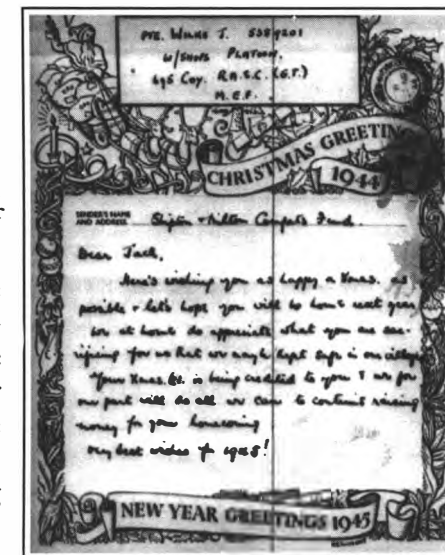 PTE. WILKS J. 5389201
W/SHOPS PLATOON,
696 COY. R.A.S.C. (G.T.)
M.E.F.
CHRISTMAS GREETINGS
1944
SENDER'S NAME
AND ADDRESS Shipton & Milton Comforts Fund.
Dear Jack,
Here's wishing you as happy a Xmas. as
possible & let's hope you will be home next year
We at home do appreciate what you are sac-
rificing for us that we may be kept safe in our village
Your Xmas. is being credited to you & we for
our part will do all we can to continue raising
money for your homecoming
Very best wishes for 1945!
NEW YEAR GREETINGS 1945